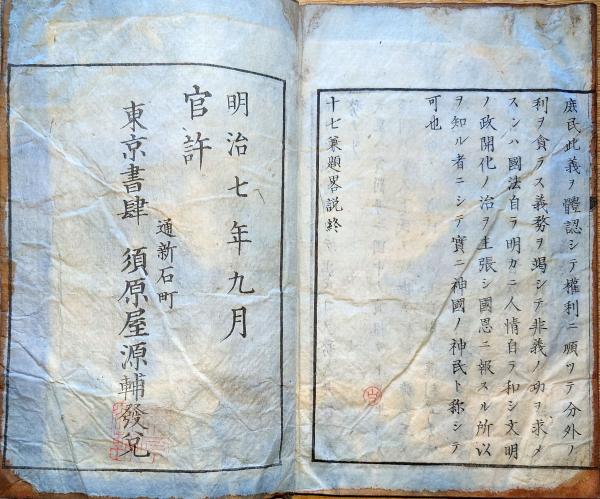 庶民此義ヲ體認シテ權利ニ順ツテ分外ノ
利ヲ貪ラス義務ヲ竭シテ非義ノ功ヲ求メ
スンハ國法自ラ明カニ人情自ラ和シ文明
ノ政開化ノ治ヲ主張シ國恩ニ報スル所以
ヲ知ル者ニシテ實ニ神國ノ神民ト称シテ
可也
十七兼題畧説終
明治七年九月
官許
通新石町
東京書肆 須原屋源輔發兌